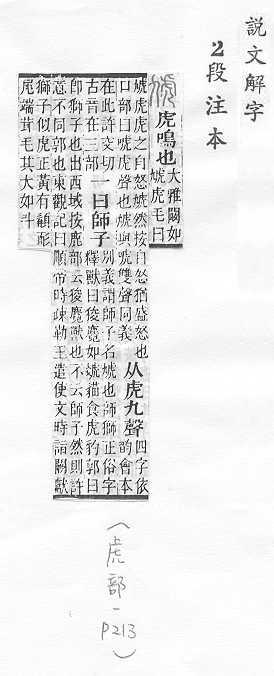 說文解字
2段注本
虓 虎鳴也 大雅闞如
虓虎毛曰
虓虎虎之自怒虓然按自怒猶盛怒也
口部曰唬虎聲也虓與唬雙聲同義
从虎九聲 四字依
韵會本
在此許交切
古音在三部
一曰師子 別義謂師子名虓也師獅正俗字
釋獸曰狻麑如虦貓食虎豹郭曰
即師子也出西域按鹿部云狻麑獸也不云師子然則許
意不同郭也東觀記曰順帝時疎勒王遣使文時詣闕獻
獅子似虎正黃有髯耏
尾端茸毛其大如斗
(虎部-P213)